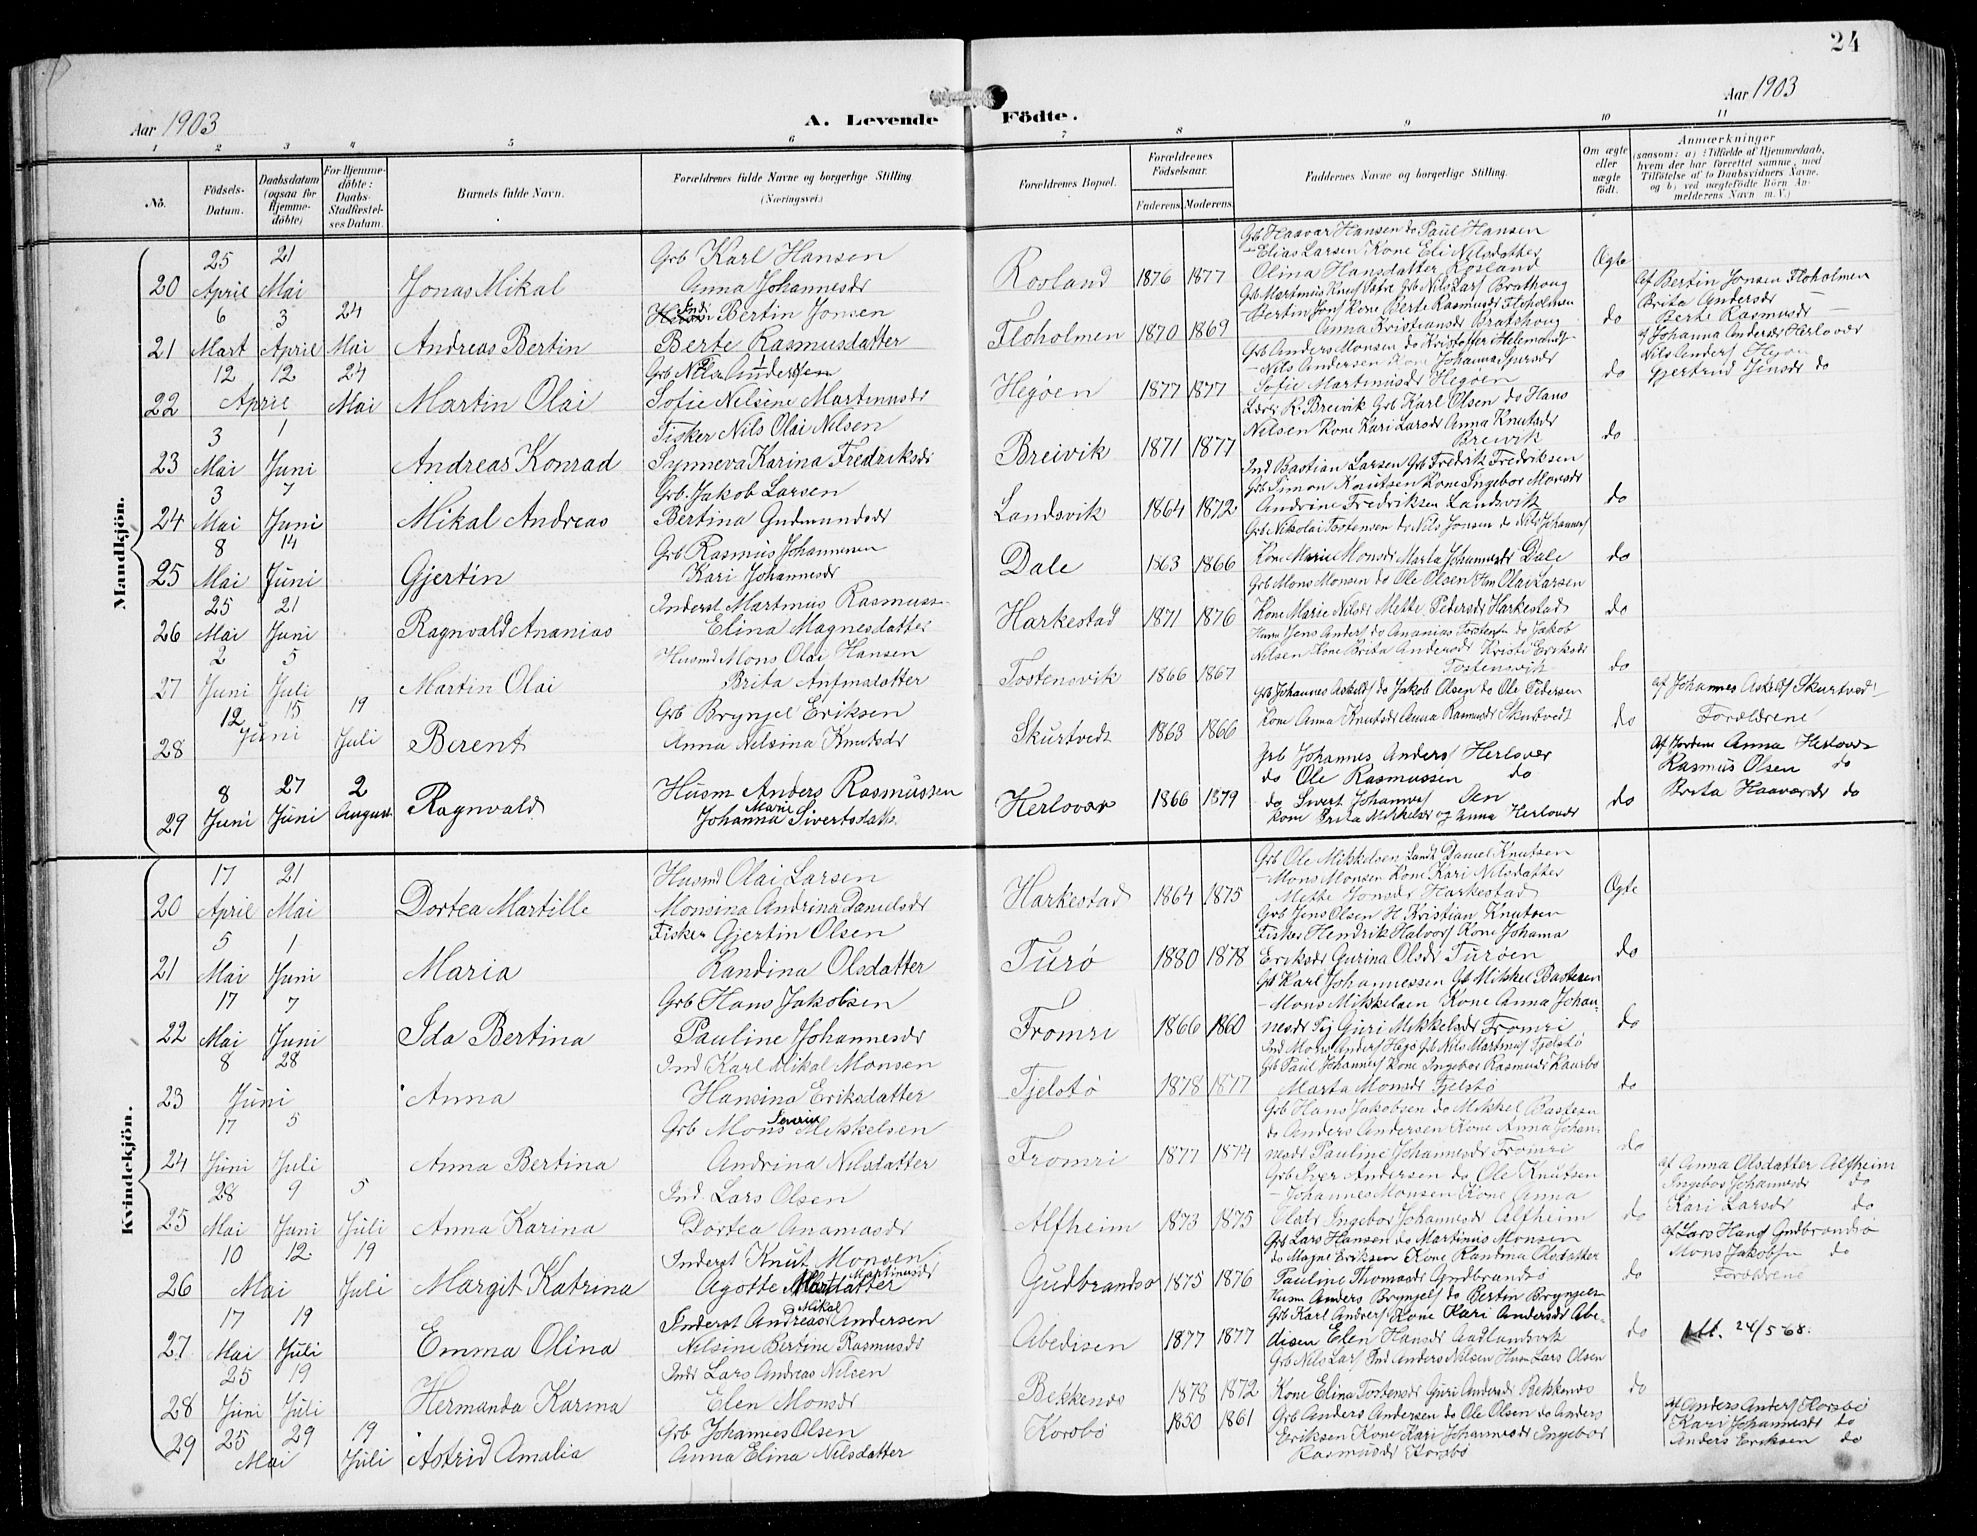 24
Aar 1903
A. Levende Födte.
Aar 1903
1 2 3 4 5 6 7 8 9 10 11
No.
Födsels-Datum.
Daabsdatum (ogsaa for Hjemme-döbte)
For Hjemme-döbte: Daabs-Stadfæstel-ses Datum.
Barnets fulde Navn.
Forældrenes fulde Navne og borgerlige Stilling (Næringsvei.)
Forældrenes Bopæl.
Forældrenes Födselsaar.
Faderens. Moderens.
Faddernes Navne og borgerlige Stilling.
Om ægte eller uægte födt.
Anmærkninger
(saasom: a) i Tilfælde af Hjemmedaab,
hvem der har forrettet samme, med
Tilföielse af to Daabsvidners Navne,
og b) ved uægtefödte Börn An-
melderens Navn m.V.)
Mandkjön.
20 25 April 21 Mai Jonas Mikal Grb Karl Hansen Anna Johannesdr Rosland 1876 1877 Grb Haavar Hansen do Paul Hansen
Elias Larsen Kone Eli Nilsdatter
Olina Hansdatter Rosland Ægte
21 6 Mart 3 April 24 Mai Andreas Bertin Ind Bertin Jonsen Berte Rasmusdatter Floholmen 1870 1869
Bertin Jons Kone Berte Rasmusdr Floholmen
Anna Kristiansdr Bratshoug do
af Bertin Jonsen Floholmen
Brita Andersdr
Berte Rasmusdr
22 12 April 12 24 Mai Martin Olai Grb Nils Andersen Sofie Nelsene Martinusdr Hegöen 1877 1877 Grb Anders Monsen do Kristoffer
Nils Andersen Kone Johanna
Sofie Martinusdr Hegöen do
af Johanna Andersdr Herlovær
Nils Anders Hegöen
Gjertrud Jensdr do
23 3 Mai 1 Juni Andreas Konrad Fisker Nils Olai Nilsen Synneva Karina Fredriksdr Breivik 1871 1877 R. Breivik Grb Karl Olsen do Hans
Nilsen Kone Kari Larsdr Anna Knutsdr
Breivik do
24 3 Mai 7 Juni Mikal Andreas Grb. Jakob Larsen Bertina Gudmundsdr Landsvik 1864 1872 Ind Bastian Larsen Grb Fredrik Fredriksen
Grb Simon Knutsen Kone Ingebor Monsdr
Andrine Fredriksen Landsvik do
25 8 Mai 14 Juni Gjertin Grb Rasmus Johannesen Kari Johannesdr Dale 1863 1866 Grb Nikolai Tostensen do Nils Jonsen do Nils Johannes
Kone Marie Monsdr Marta Johannesdr Dale do
26 25 Mai 21 Juni Ragnvald Ananias Inderst Martinus Rasmuss. Elina Magnesdatter Harkestad 1871 1876 Grb Mons Monsen do Ole Olsen Hm Olai Larsen
Kone Marie Nilsdr Mette Pedersdr Harkestad do
27 2 Juni 5 Juli Martin Olai Husmd Mons Olai Hansen Brita Anfinsdatter Tostensvik 1866 1867 Husm Jens Anders do Ananias Tostensen do Jakob
Nilsen Kone Brita Andersdr Kristi Eriksdr
Tostensvik do
28 12 Juni 15 19 Juli Berent Grb Brynjel Eriksen Anna Nilsina Knutsdr Skurtvedt 1863 1866 Grb Johannes Askelds do Jakob Olsen do Ole Pedersen
Kone Anna Knutsdr Anna Rasmusdr Skurtvedt do
af Johannes Askelds Skurtved
Forældrene
29 8 Juni 27 Juni 2 August Ragnvald Husm Anders Rasmussen Johanna Marie Sivertsdatt. Herlovær 1866 1879 Grb Johannes Anders Herlover
do Ole Rasmussen do
do Sivert Johannes Oen
Kone Brita Mikkelsdr og Anna Herlovær do
af Jordem Anna Herlovær
Rasmus Olsen do
Brita Haavarsdr do
Kvindekjön.
20 17 April 21 Mai Dortea Martille Husmd Olai Larsen Monsina Andrina Danielsdr Harkestad 1864 1875 Grb Ole Mikkelsen Landh Daniel Knutsen
Mons Monsen Kone Kari Nilsdatter
Mette Jonsdr Harkestad Ægte
21 5 Mai 1 Juni Maria Fisker Gjertin Olsen Randina Olsdatter Turö 1880 1878 Grb Jens Olsen H Kristian Knutsen
Fisker Hendrik Halvors Kone Johanna
Eriksdr Gurina Olsdr Turöen do
22 17 Mai 7 Juni Ida Bertina Grb Hans Jakobsen Pauline Johannesdr Fromri 1866 1860 Gb Karl Johannessen Gb Mikkel Bastesen
Mons Mikkelsen Kone Anna Johan-
nesdr Pij Guri Mikkelsdr Fromri do
23 8 Juni 28 Anna Ind Karl Mikal Monsen Hansina Eriksdatter Fjelstö 1878 1877 Ind Mons Anders Hegö Gb Nils Martinus Fjelstö
Grb Paul Johannes Kone Ingebor Rasmusdr Kaarbö
Marta Monsdr Fjelstö do
24 17 Juni 5 Juli Anna Bertina Grb Mons Severin Mikkelsen Andrina Nilsdatter Fromri 1877 1874 Grb Hans Jakobsen do Mikkel Bastesen
do Anders Andersen Kone Anna Johan-
nesdr Pauline Johannesdr Fromri do
25 28 Mai 9 Juni 5 Juli Anna Karina Ind. Lars Olsen Dortea Ananiasdr Alfheim 1873 1875 Grb Iver Andersen do Ole Knutsen
Johannes Monsen Kone Anna
Olsdr Ingebor Johannesdr Alfheim do
af Anna Olsdatter Alfheim
Ingebor Johannesdr do
Kari Larsdr do
26 10 Mai 12 19 Juli Margit Katrina Inderst Knut Monsen Agotte Martinusdr Gudbrandsö 1875 1876 Grb Lars Hansen do Martinus Monsen
do Magne Eriksen Kone Randina Olsdatter
Pauline Thomasdr Gudbrandsö do
af Lars Hans Gudbrandsö
Mons Jakobsen do
Forældrene
27 17 Mai 19 Juli Emma Olina Inderst Andreas Mikal Andersen Nilsine Bertine Rasmusdr Abedisen 1877 1877 Husm Anders Brynjels do Bertin Brynjels
Grb Karl Anders Kone Kari Andersdr Abe-
disen Elen Hansdr Aadlandsvik do
Att. 24/5 68.
28 25 Juni 19 Juli Hermanda Karina Indr Lars Andreas Nilsen Elen Monsdr Bekkenes 1878 1872 Grb Nils Lars Ind Anders Nilsen Husm Lars Olsen
Kone Elina Tostensdr Guri Andersdr Bekkenes do
29 25 Mai 29 19 Juli Astrid Amalia Grb Johannes Olsen Anna Elina Nilsdatter Korsbö 1850 1861 Grb Anders Andersen do Ole Olsen do Anders
Eriksen Kone Kari Johannesdr Ingebor
Rasmusdr Korsbö
af Anders Anders Korsbö
Kari Johannesdr do
Anders Eriksen do